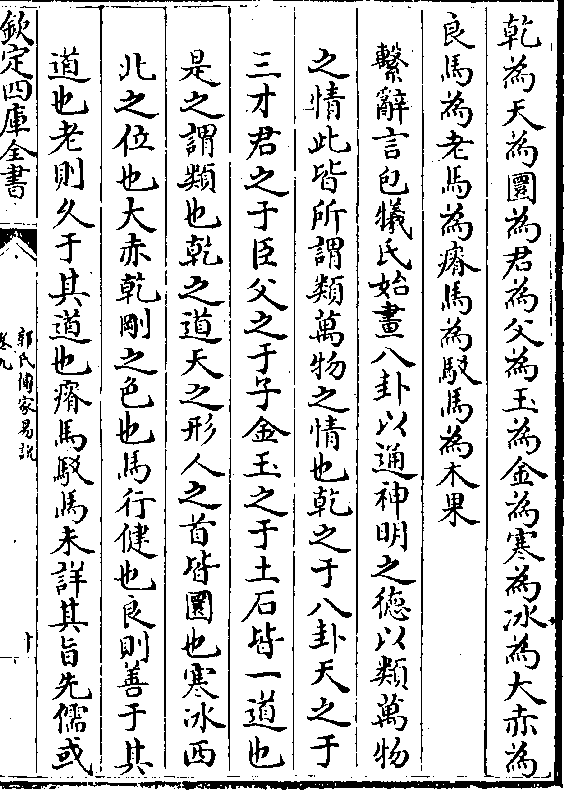 乾為天為圜為君為父為玉為金為寒為冰為大赤為
良馬為老馬為瘠馬為駁馬為木果
繫辭言包犧氏始畫八卦以通神明之德以類萬物
之情此皆所謂類萬物之情也乾之于八卦天之于
三才君之于臣父之于子金玉之于土石皆一道也
是之謂類也乾之道天之形人之首皆圜也寒冰西
北之位也大赤乾剛之色也馬行健也良則善于其
道也老則久于其道也瘠馬駁馬未詳其旨先儒或
欽定四庫全書
郭氏傳家易說
卷九
十